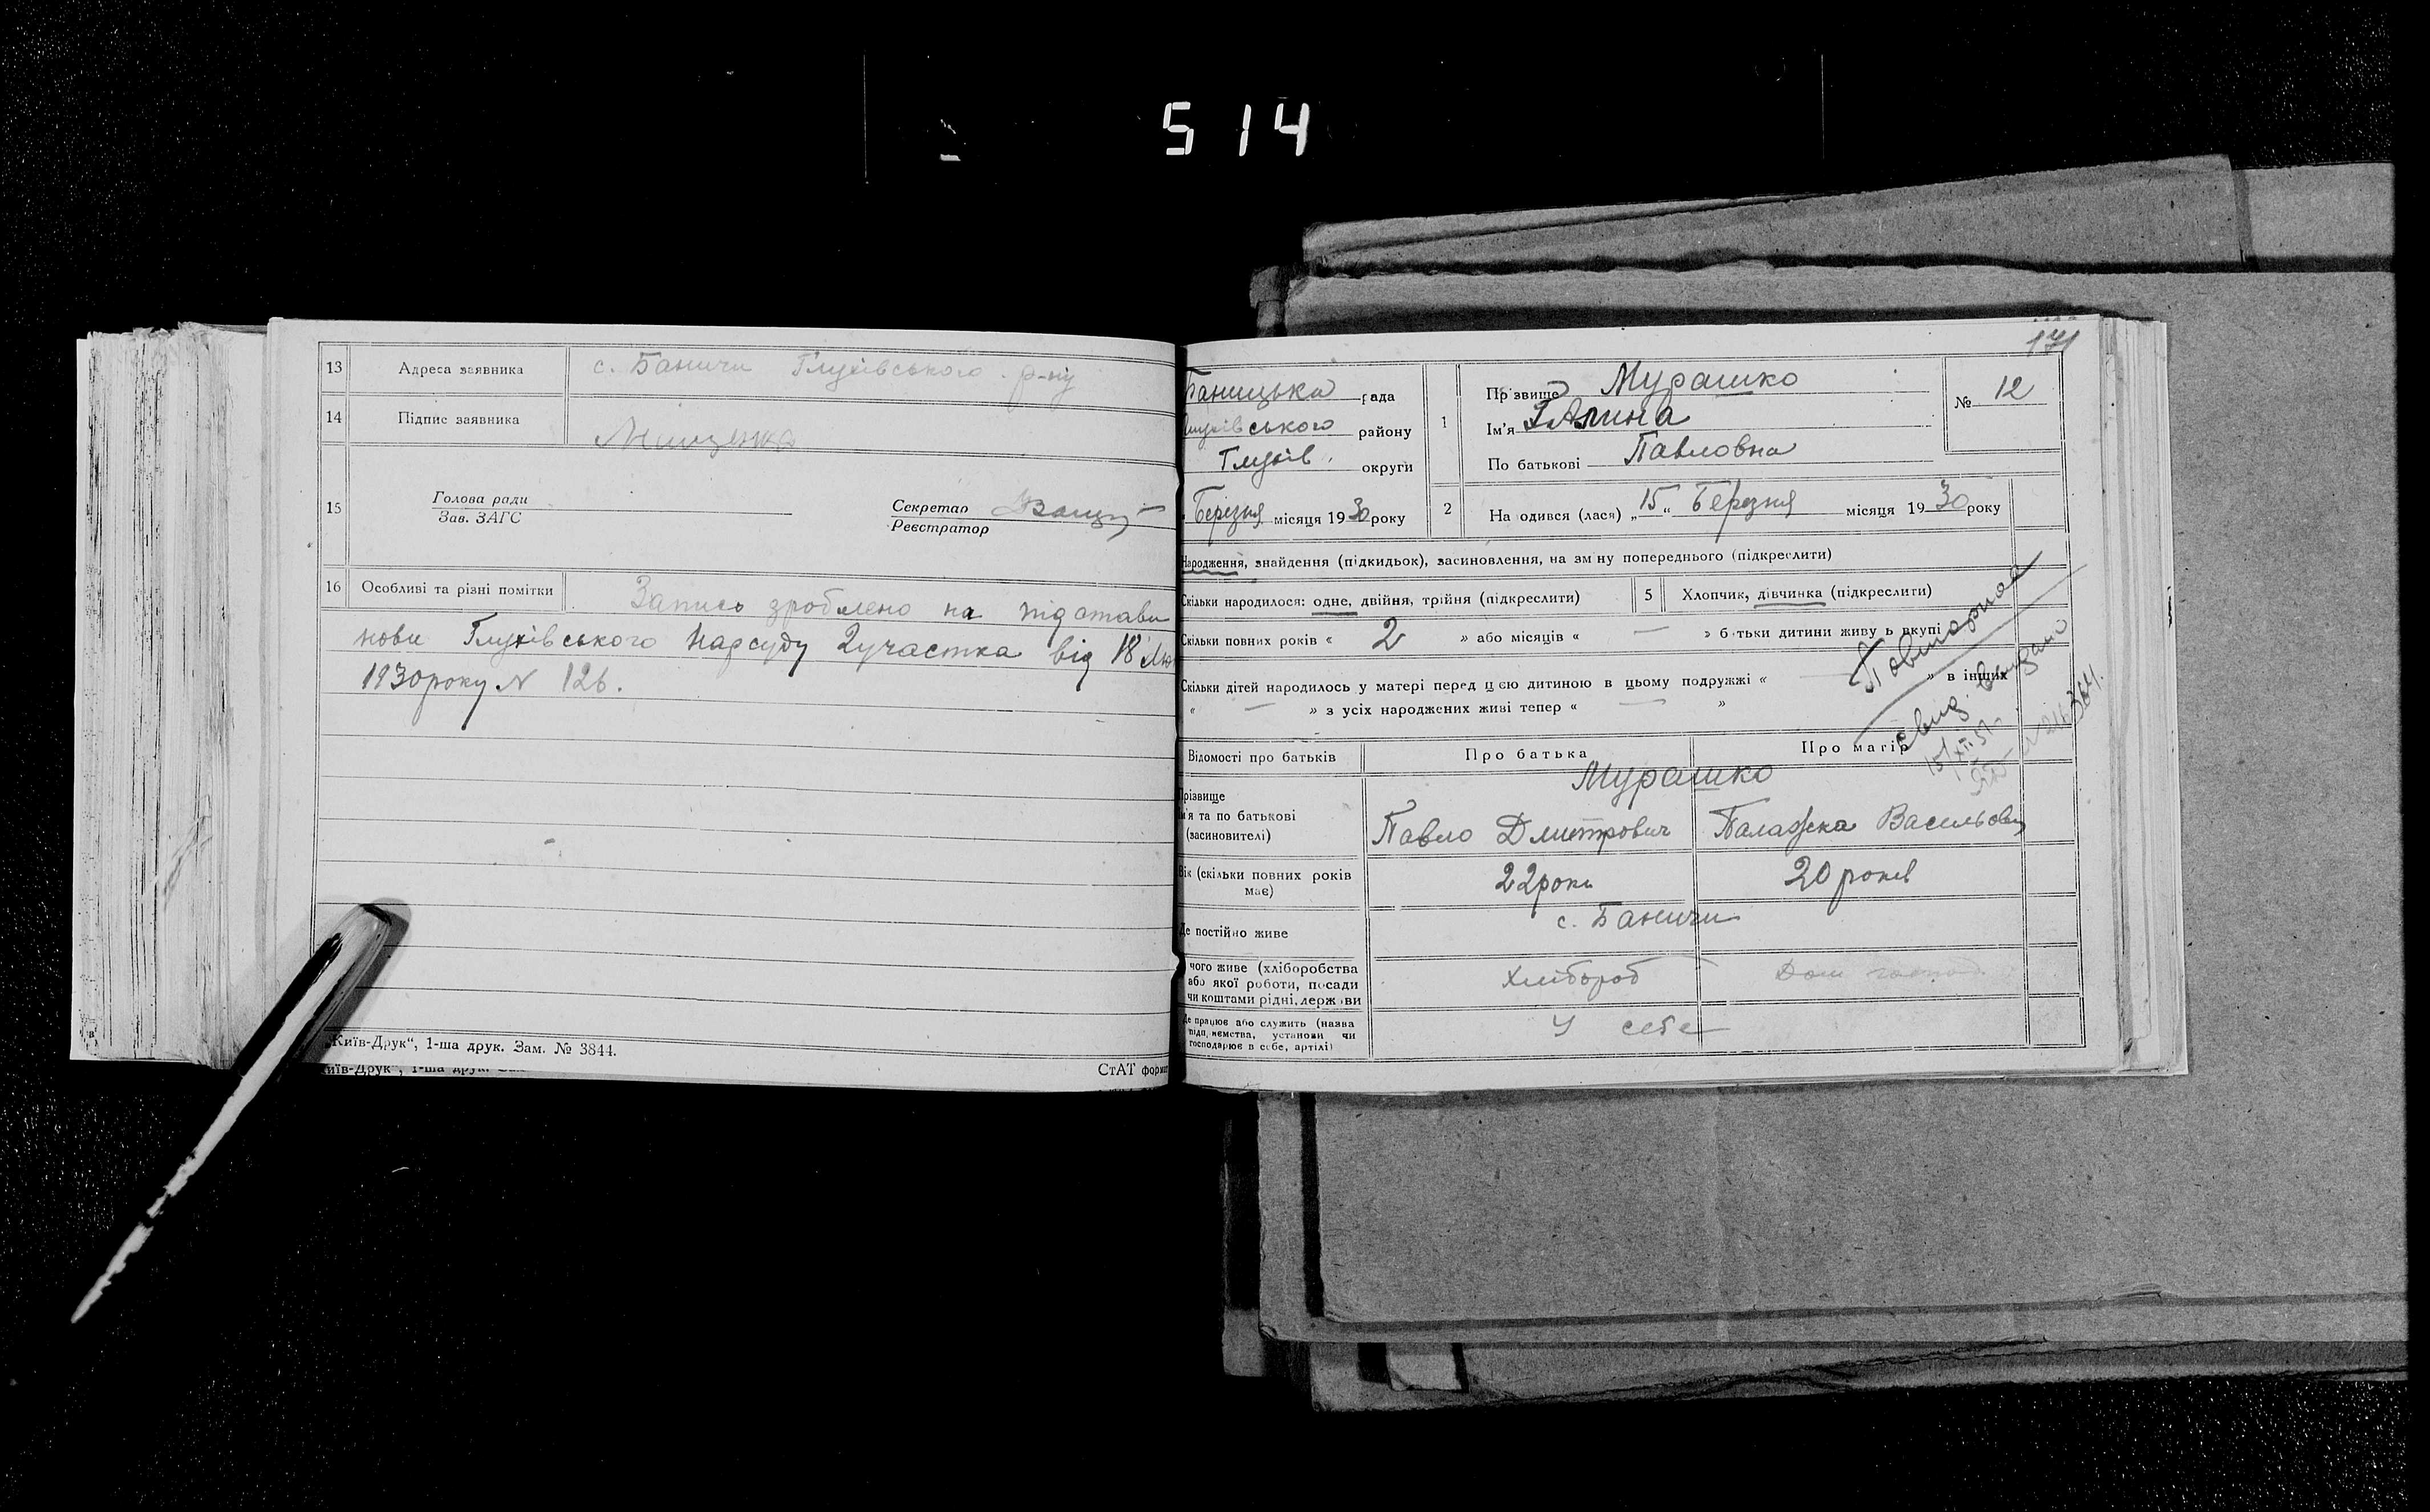 514
13 Адреса заявника с. Баничи Глухівського р-ну
14 Підпис заявника Мищенко
15 Голова ради Секретар
Зав. ЗАГС Реєстратор
16 Особливі та різні помітки Запись зроблено на підстави
нови Глухівського Нарсуду 2 участка від 18 Лю
1930 року N 126.
„Київ-Друк“, 1-ша друк. Зам. № 3844.
СтАТ форма
иїв-Друк“, 1-ша друк.
171
Баницька рада
Глухівського району
Глухів. округи
Березня місяця 1930 року
1 Прізвище Мурашко
Ім'я Галина
По батькові Павловна
№ 12
2 Народився (лася) „15“ Березня місяця 1930 року
Народження, знайдення (підкидьок), засиновлення, на зміну попереднього (підкреслити)
Скільки народилося: одне, двійня, трійня (підкреслити) 5 Хлопчик, дівчинка (підкреслити)
Скільки повних років « 2 » або місяців « — » батьки дитини живуть вкупі
Скільки дітей народилось у матері перед цією дитиною в цьому подружжі « — » в інших
« — » з усіх народжених живі тепер « — »
Повторное
свид. выдано
15/XI-51г.
Відомості про батьків Про батька Про матір
Мурашко
Прізвище
Ім'я та по батькові
(засиновителі) Павло Дмитрович Палажка Васильовн
Вік (скільки повних років
має) 22 роки 20 років
с. Баничи
Де постійно живе
чого живе (хліборобства
або якої роботи, посади
чи коштами рідні, держави
Хлібороб Дом господ.
Де працює або служить (назва
підприємства, установи чи
господарює в себе, артілі)
У себе